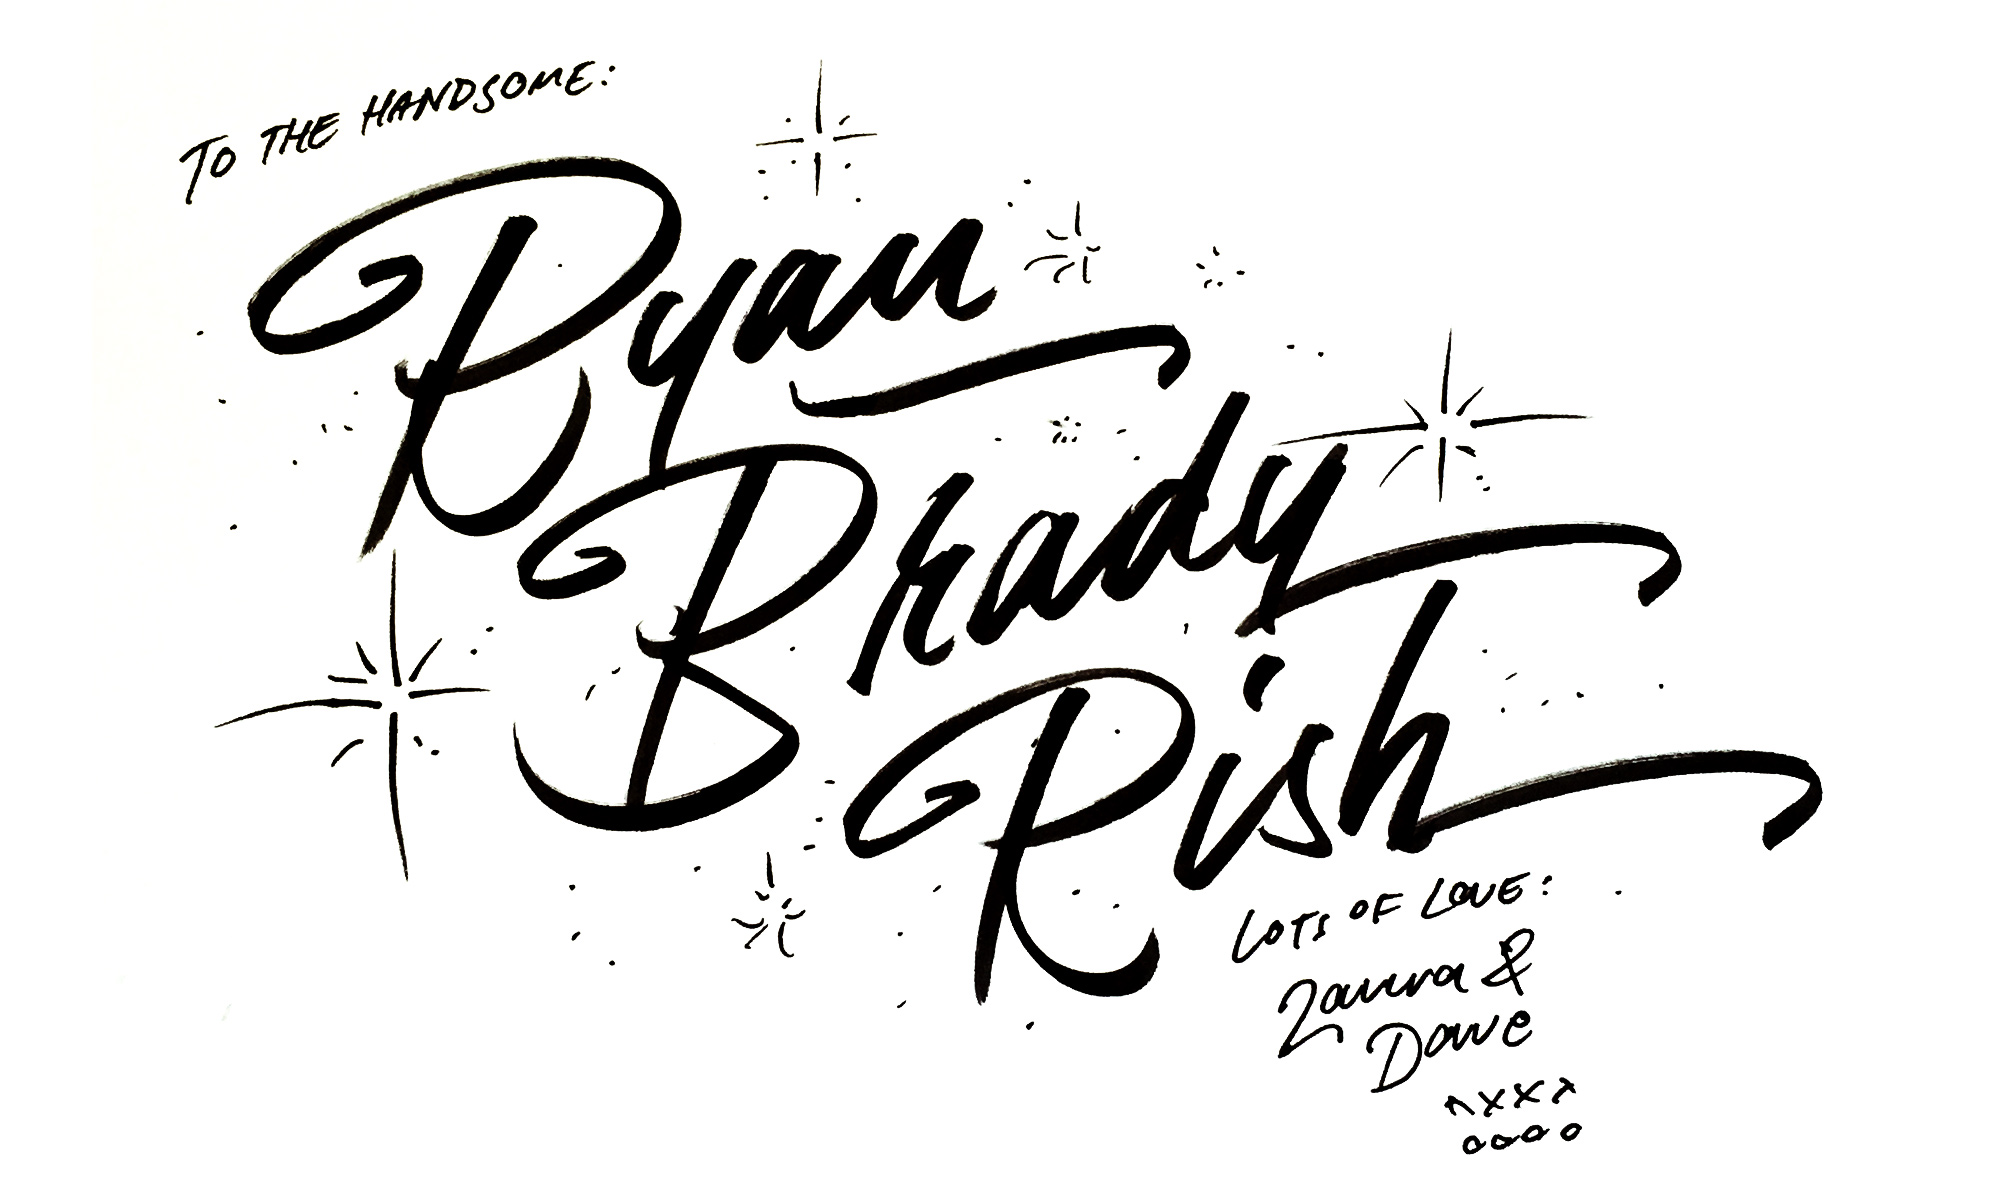 TO THE HANDSOME:
Ryan
Brady
Rish
LOTS OF LOVE:
Laura &
Dave
xxxx
oooo